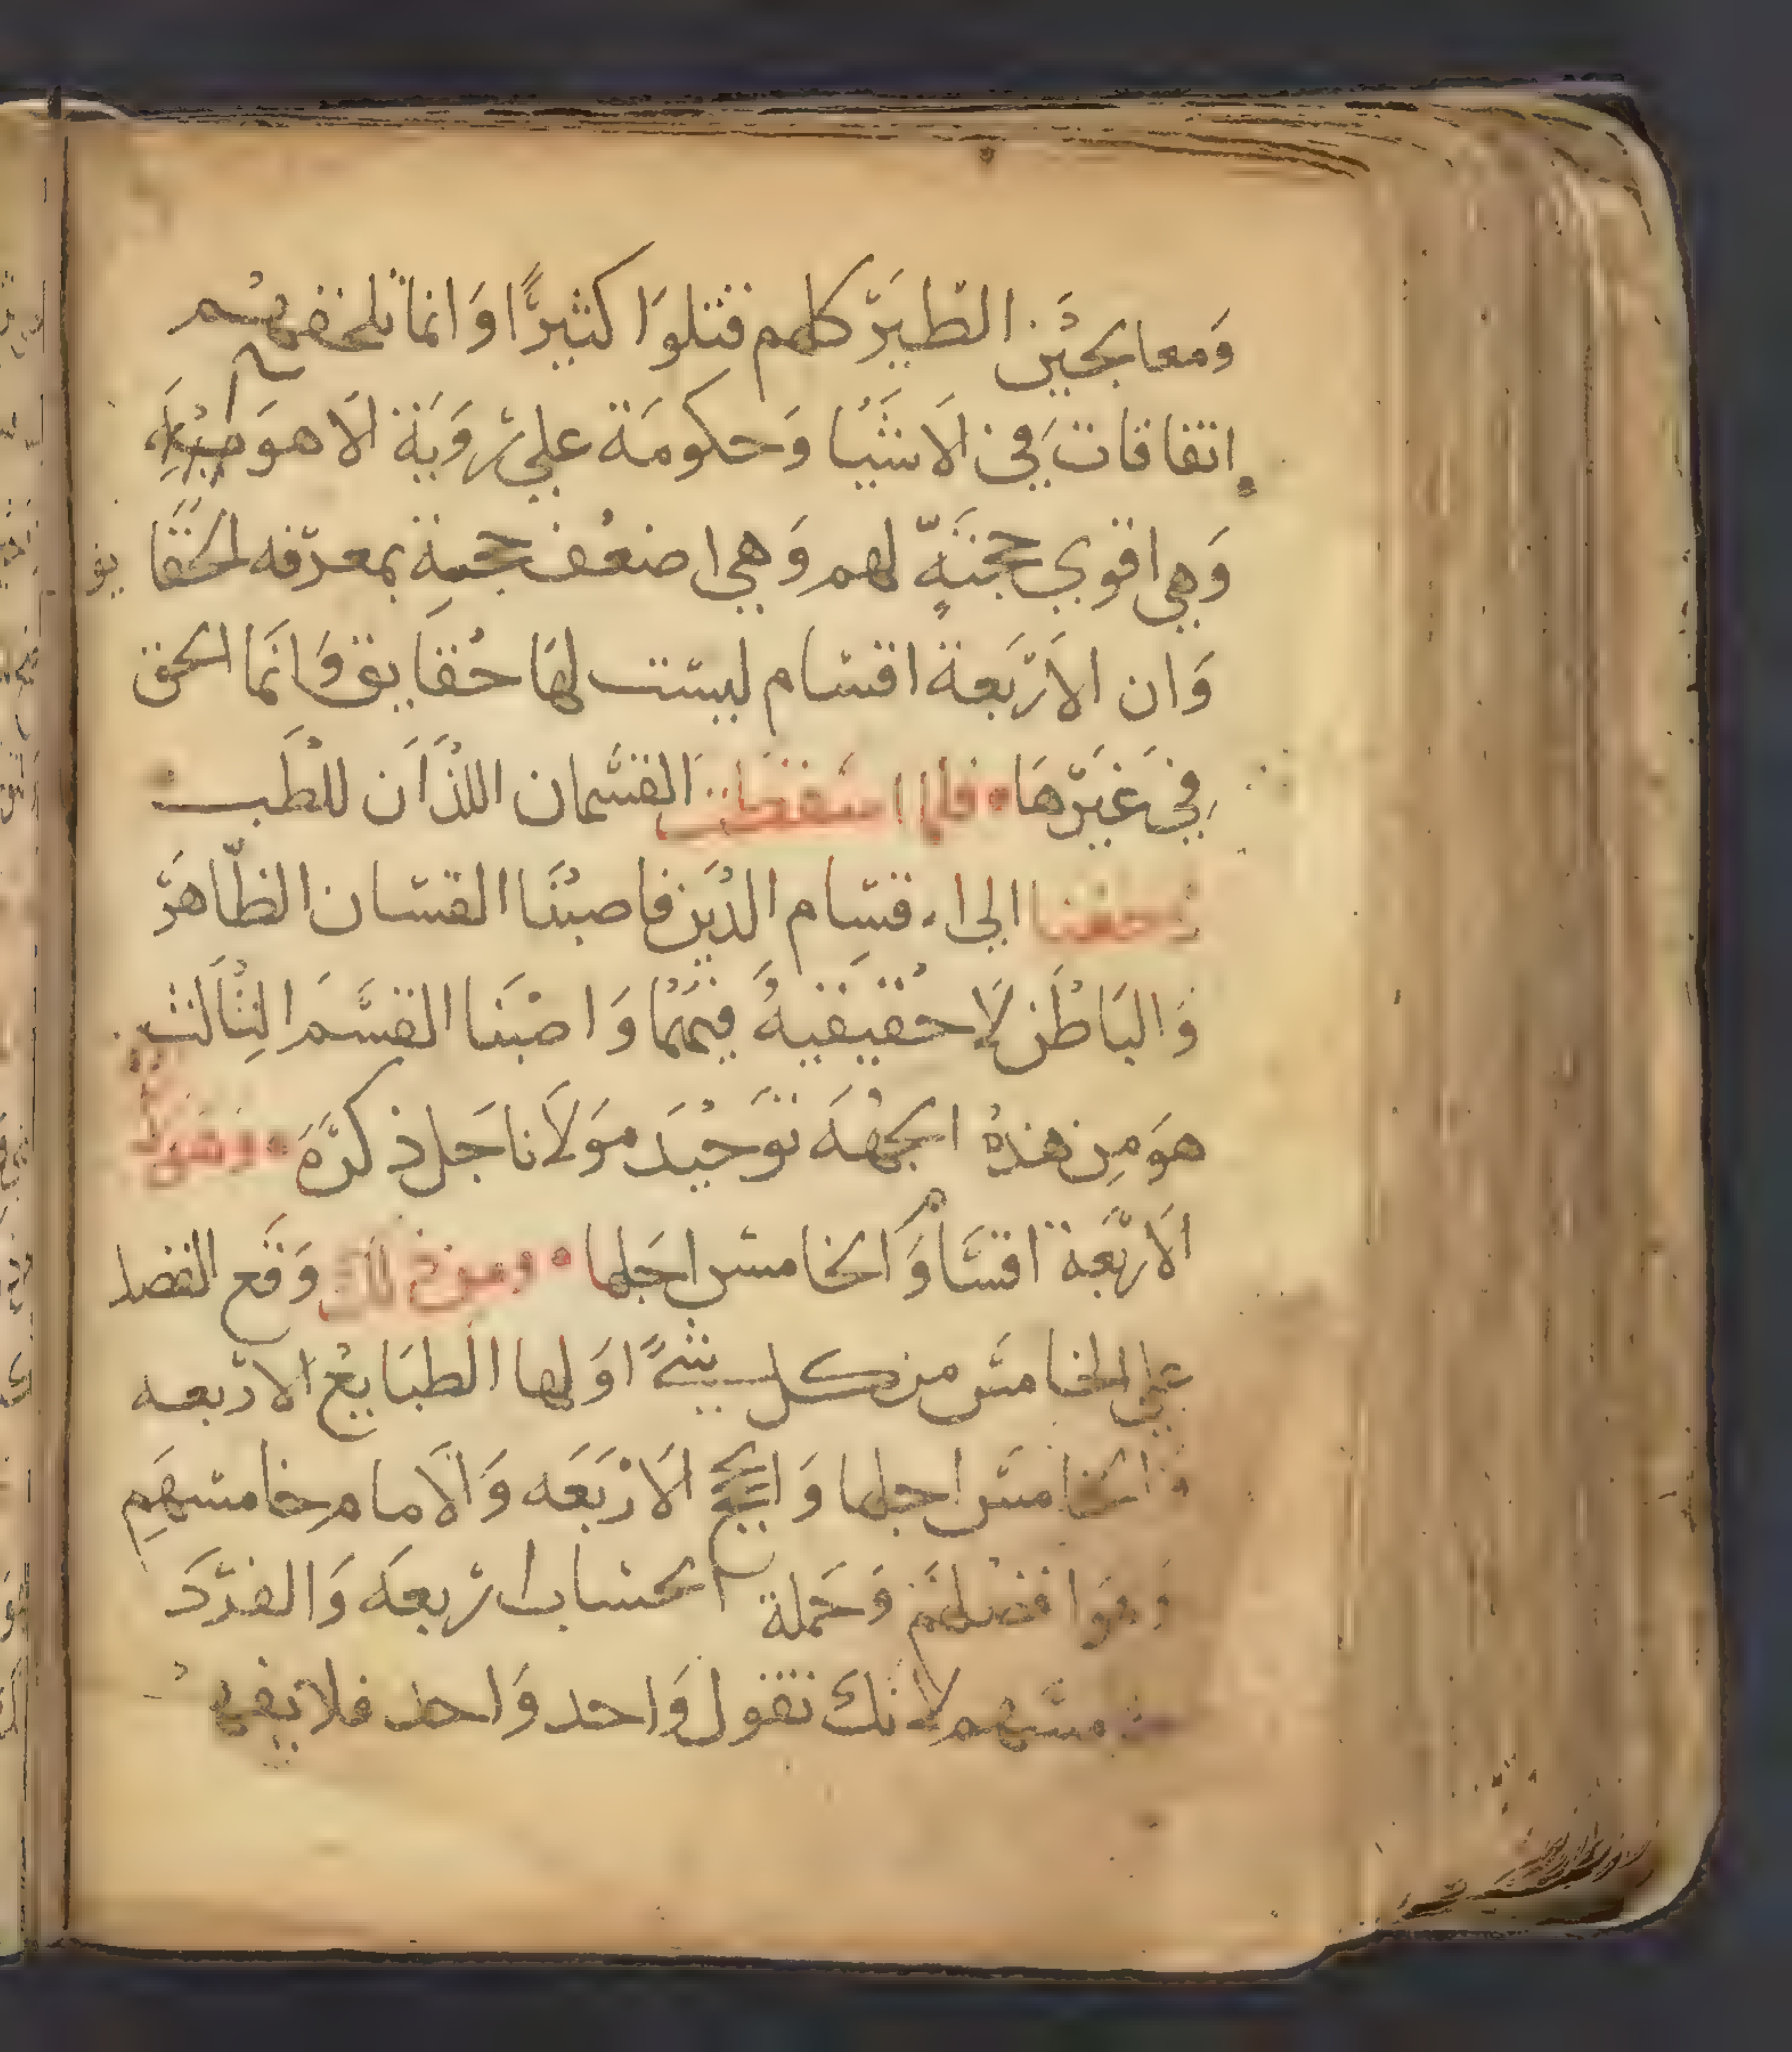 وَمعاجين الطبَرّ كلهم قتلوَا كثيرًّا وَانما تلحقهم
إتفاقات في الاشيَا وَحكومَة علي رّوَيَة الاهوَيَة
وَهي اقوي حجّةٍ لهم وَهي اضعف حجةِ بمعرّفه الحقَا يق
وَان الاَرّبَعة اقسَام ليست لهَا حُقايق وَانَما الحق
في غيَرّهَا ۰ فلما اسقطت القسَمان اللذَان للطَب
رجعنا الى اقسَام الدَين فاصبنَا القسمان الظاهرَّ
وَالبَاطن لَا حُقيقيهُ فيهَمُا وَاصبَنا القسَّمَ الثالَث
هوَمِن هذهُ الجهُهَ توَحيْدَ موَلاَنا جَل ذكرّهَ ۰ وَهوَلا
الاَرّبَعة اقسَّاوَ الخامسَ اجَلها ۰ ومن ذلك وَقَع الفضل
علي الخامسَ من كل شيً اوَلها الطبَايعْ الارّبعه
وَالخامسَ اجلها وَالحجج الاَرْبَعَه وَالاَمامِ خامسهَمِ
وَهوَا فضلهَم وَجَملة الحسَاب ارّبعهَ وَالفرّدَ
خامسَهم لانك تقوَل وَاحد وَاحد فلا يقع